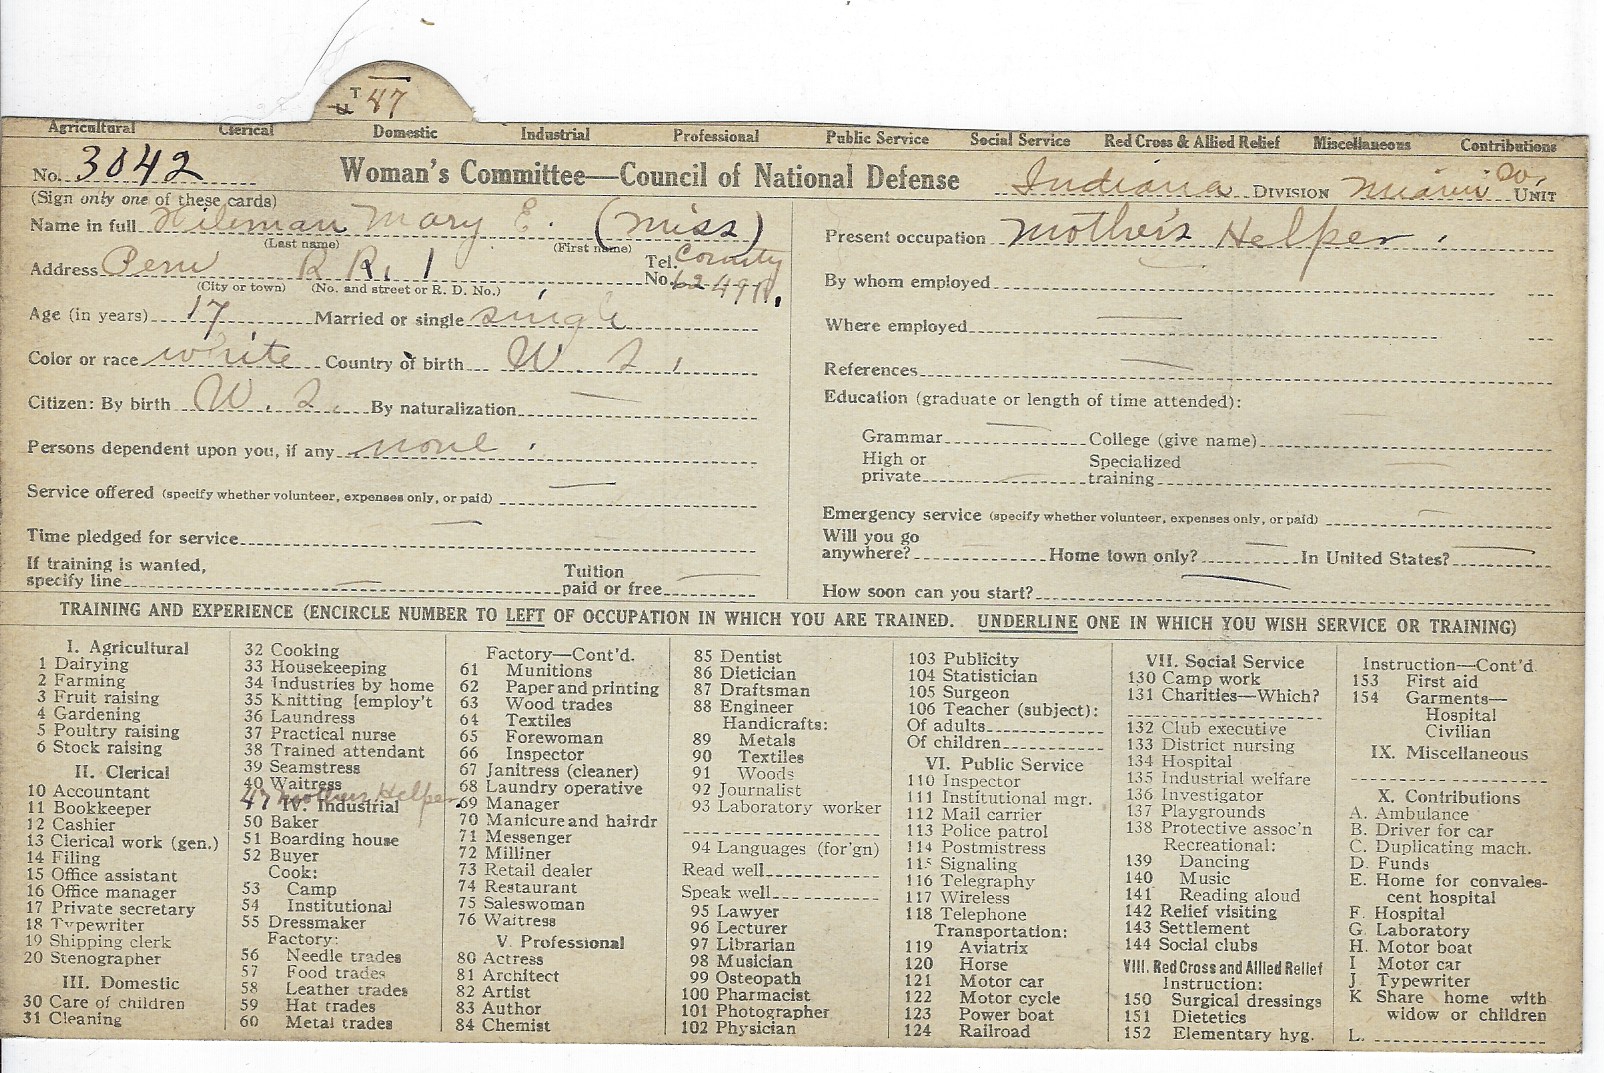 T
U 47
Agricultural Clerical Domestic Industrial Professional Public Service Social Service Red Cross & Allied Relief Miscellaneous Contributions
No. 3042 Woman's Committee—Council of National Defense Indiana DIVISION Miami Co. UNIT
(Sign only one of these cards)
Name in full Hileman Mary E. (Miss)
(Last name) (First name)
Address Peru R R. 1 Tel. No. County 62-491
(City or town) (No. and street or R. D. No.)
Age (in years) 17 Married or single single
Color or race white Country of birth U. S.
Citizen: By birth U. S. By naturalization
Persons dependent upon you, if any none.
Service offered (specify whether volunteer, expenses only, or paid)
Time pledged for service
If training is wanted,
specify line Tuition
paid or free
Present occupation Mother's Helper.
By whom employed
Where employed
References
Education (graduate or length of time attended):
Grammar College (give name)
High or Specialized
private training
Emergency service (specify whether volunteer, expenses only, or paid)
Will you go
anywhere? Home town only? In United States?
How soon can you start?
TRAINING AND EXPERIENCE (ENCIRCLE NUMBER TO LEFT OF OCCUPATION IN WHICH YOU ARE TRAINED. UNDERLINE ONE IN WHICH YOU WISH SERVICE OR TRAINING)
I. Agricultural
1 Dairying
2 Farming
3 Fruit raising
4 Gardening
5 Poultry raising
6 Stock raising
II. Clerical
10 Accountant
11 Bookkeeper
12 Cashier
13 Clerical work (gen.)
14 Filing
15 Office assistant
16 Office manager
17 Private secretary
18 Typewriter
19 Shipping clerk
20 Stenographer
III. Domestic
30 Care of children
31 Cleaning
32 Cooking
33 Housekeeping
34 Industries by home
35 Knitting [employ't
36 Laundress
37 Practical nurse
38 Trained attendant
39 Seamstress
40 Waitress
47 Mothers Helper.
IV. Industrial
50 Baker
51 Boarding house
52 Buyer
Cook:
53 Camp
54 Institutional
55 Dressmaker
Factory:
56 Needle trades
57 Food trades
58 Leather trades
59 Hat trades
60 Metal trades
Factory—Cont'd.
61 Munitions
62 Paper and printing
63 Wood trades
64 Textiles
65 Forewoman
66 Inspector
67 Janitress (cleaner)
68 Laundry operative
69 Manager
70 Manicure and hairdr
71 Messenger
72 Milliner
73 Retail dealer
74 Restaurant
75 Saleswoman
76 Waitress
V. Professional
80 Actress
81 Architect
82 Artist
83 Author
84 Chemist
85 Dentist
86 Dietician
87 Draftsman
88 Engineer
Handicrafts:
89 Metals
90 Textiles
91 Woods
92 Journalist
93 Laboratory worker
94 Languages (for'gn)
Read well
Speak well
95 Lawyer
96 Lecturer
97 Librarian
98 Musician
99 Osteopath
100 Pharmacist
101 Photographer
102 Physician
103 Publicity
104 Statistician
105 Surgeon
106 Teacher (subject):
Of adults
Of children
VI. Public Service
110 Inspector
111 Institutional mgr.
112 Mail carrier
113 Police patrol
114 Postmistress
115 Signaling
116 Telegraphy
117 Wireless
118 Telephone
Transportation:
119 Aviatrix
120 Horse
121 Motor car
122 Motor cycle
123 Power boat
124 Railroad
VII. Social Service
130 Camp work
131 Charities—Which?
132 Club executive
133 District nursing
134 Hospital
135 Industrial welfare
136 Investigator
137 Playgrounds
138 Protective assoc'n
Recreational:
139 Dancing
140 Music
141 Reading aloud
142 Relief visiting
143 Settlement
144 Social clubs
VIII. Red Cross and Allied Relief
Instruction:
150 Surgical dressings
151 Dietetics
152 Elementary hyg.
Instruction—Cont'd.
153 First aid
154 Garments—
Hospital
Civilian
IX. Miscellaneous
X. Contributions
A. Ambulance
B. Driver for car
C. Duplicating mach.
D. Funds
E. Home for convales-
cent hospital
F. Hospital
G. Laboratory
H. Motor boat
I Motor car
J. Typewriter
K Share home with
widow or children
L.